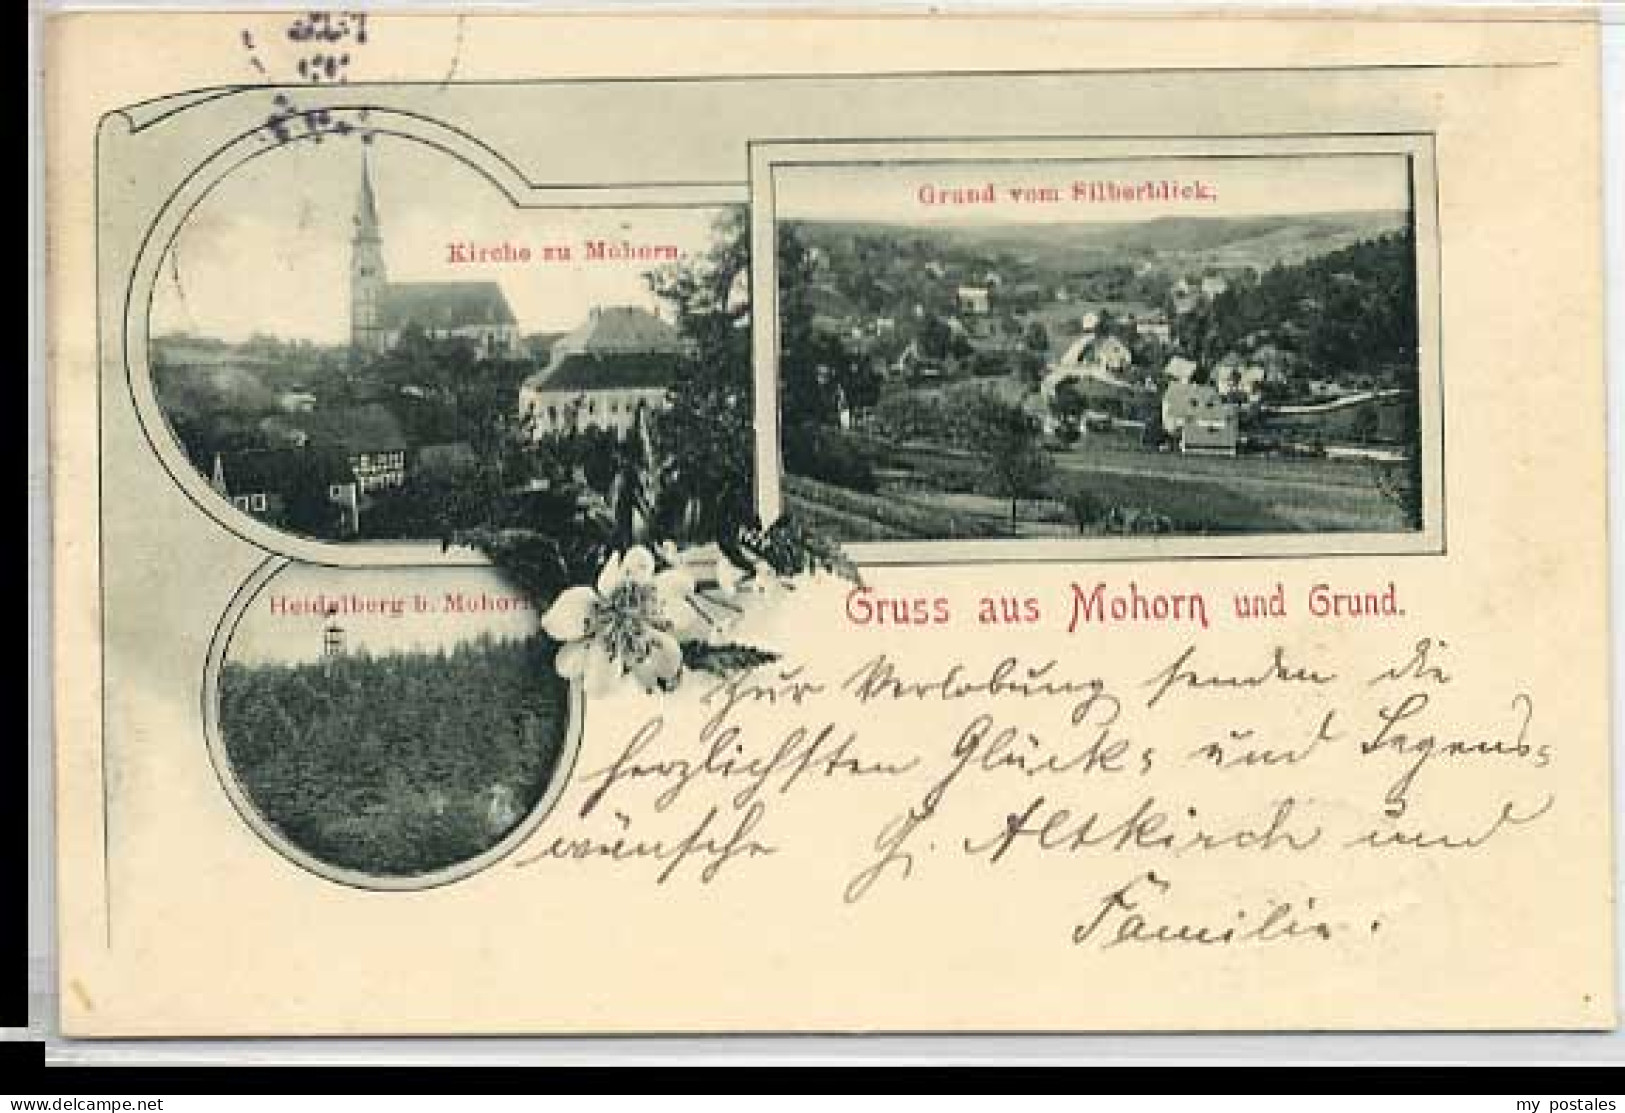 Kirche zu Mohorn.
Grund vom Silberblick.
Heidelberg b. Mohorn
Gruss aus Mohorn und Grund.
Zur Verlobung senden die
herzlichsten Glück- und Segens-
wünsche G. Altkirch und
Familie.
my postales